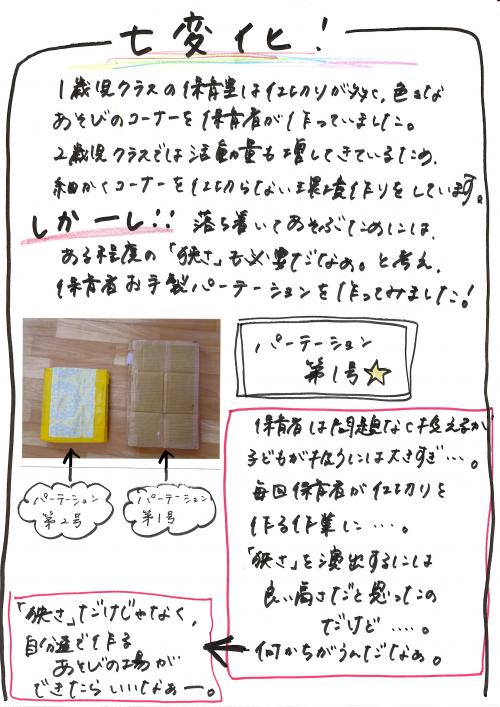 七変化！
1歳児クラスの保育室は仕切りが多く、色々な
あそびのコーナーを保育者が作っていました。
2歳児クラスでは活動量も増してきているため、
細かくコーナーを仕切らない環境作りをしています。
しかーし!! 落ち着いてあそぶためには、
ある程度の「狭さ」も必要だなぁ。と考え、
保育者お手製パーテーションを作ってみました！
パーテーション
第1号
パーテーション
第2号
パーテーション
第1号
保育者は問題なく扱えるが
子どもが扱うには大きすぎ…。
毎回保育者が仕切りを
作る作業に…。
「狭さ」を演出するには
良い高さだと思ったの
だけど…。
何かちがうんだなぁ。
「狭さ」だけじゃなく、
自分達で作る
あそびの場が
できたらいいなぁー。